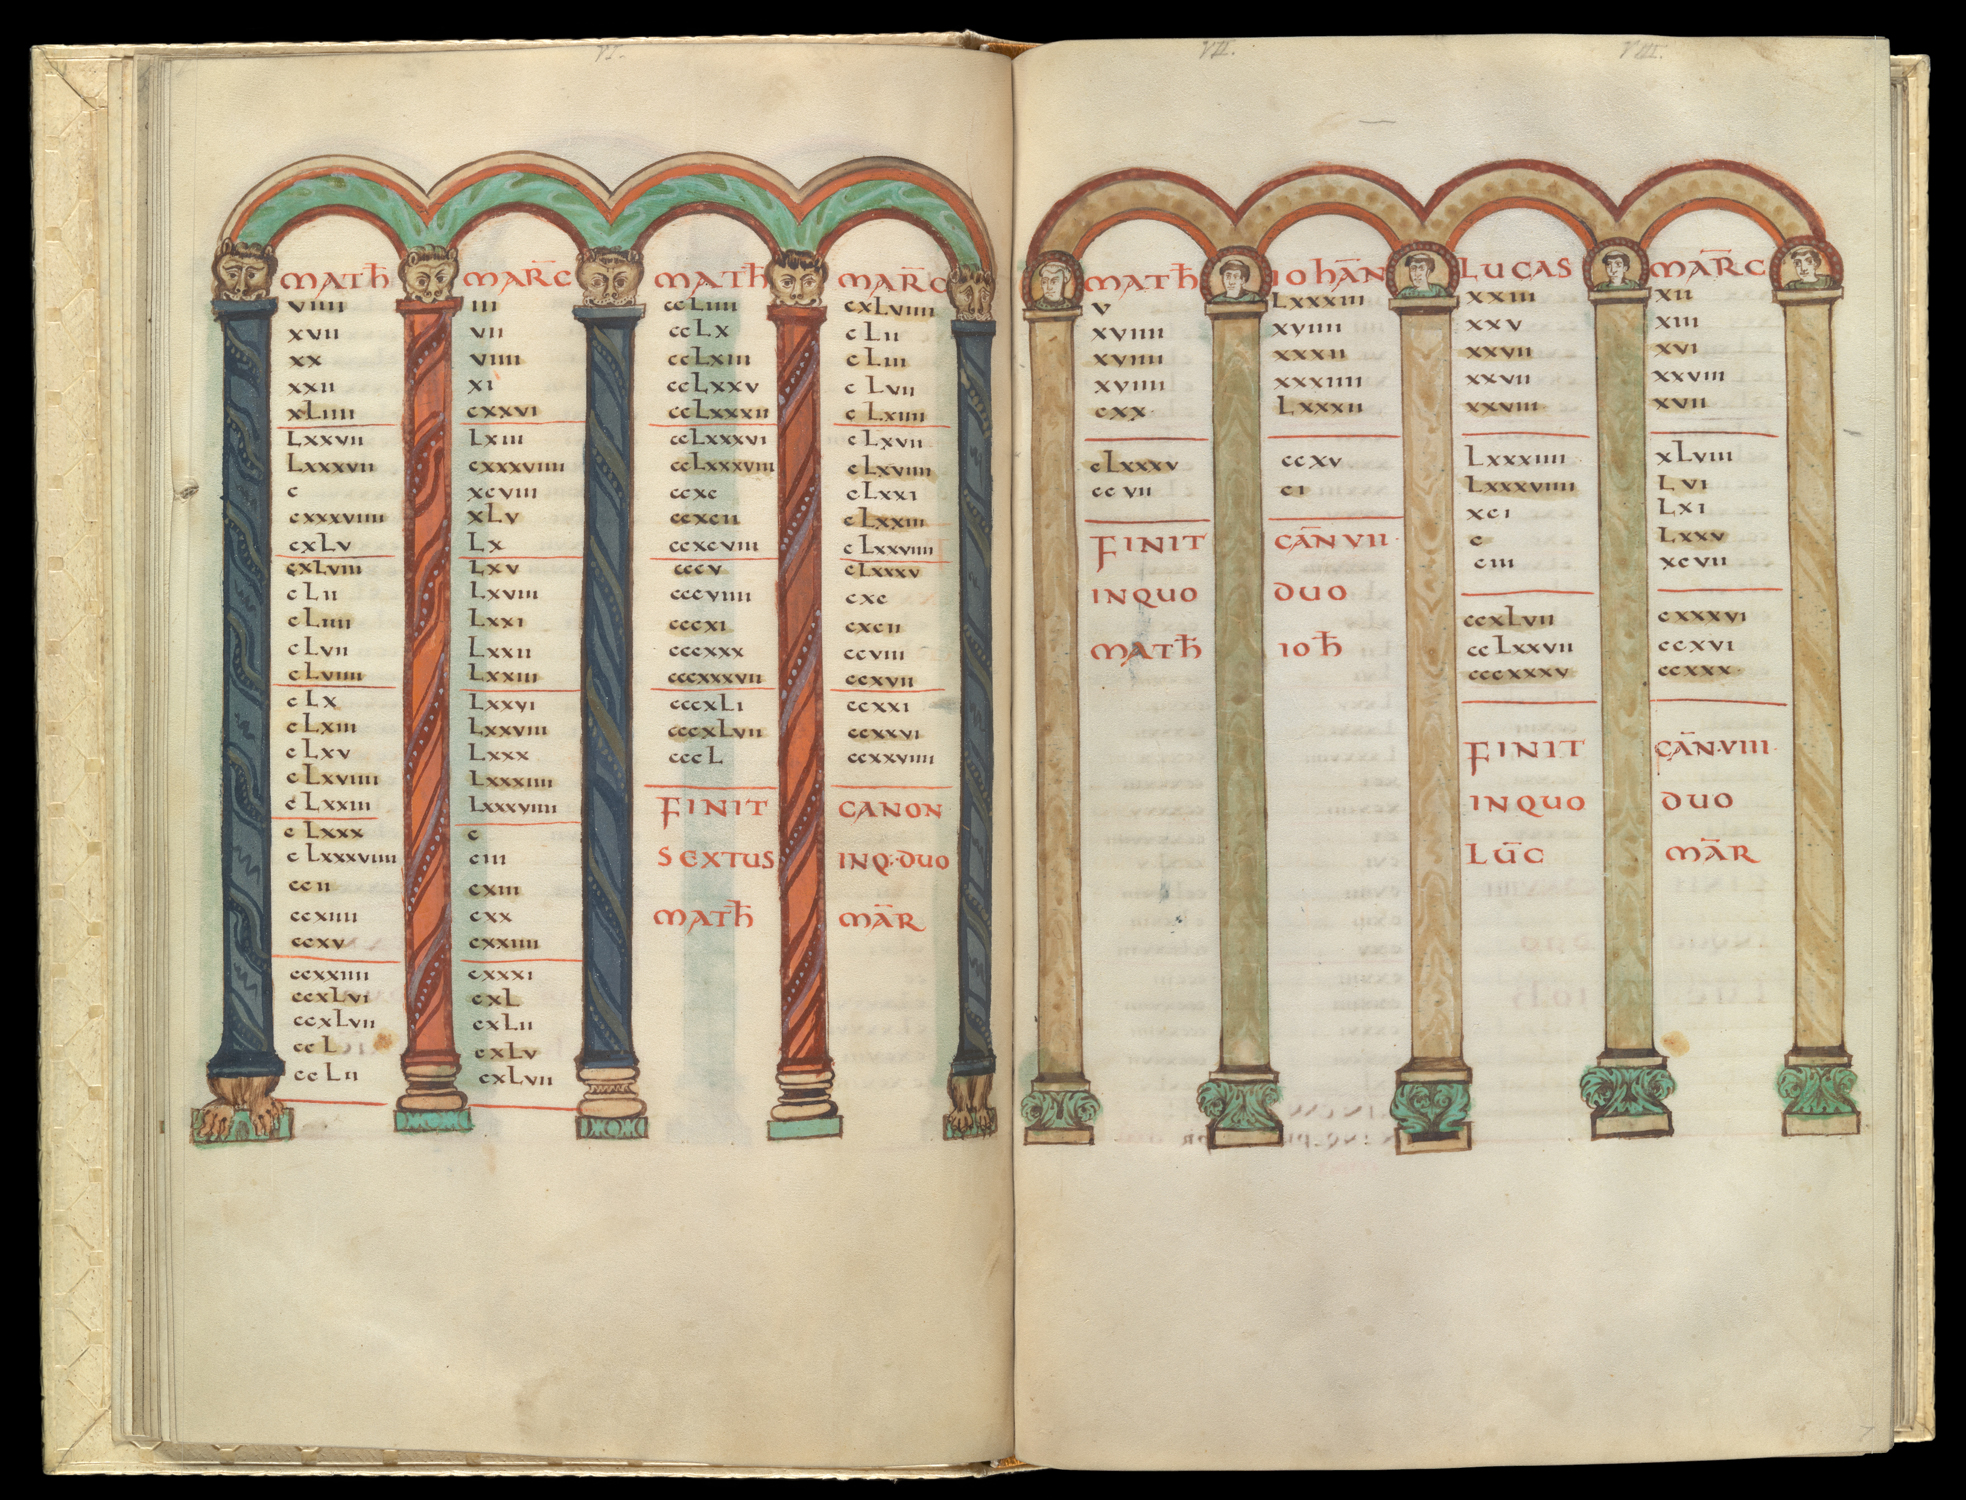 VI.
MATħ
viiii
xvii
xx
xxii
xLiiii
Lxxvii
Lxxxvii
c
cxxxviiii
cxLv
cxLviii
cLii
cLiiii
cLvii
cLviiii
cLx
cLxiii
cLxv
cLxviiii
cLxxiii
cLxxx
cLxxxviiii
ccii
ccxiiii
ccxv
ccxxiiii
ccxLvi
ccxLvii
ccL
ccLii
MAR̄C
iii
vii
viiii
xi
cxxvi
Lxiii
cxxxviiii
xcviii
xLv
Lx
Lxv
Lxviii
Lxxi
Lxxii
Lxxiii
Lxxvi
Lxxviii
Lxxx
Lxxxiiii
Lxxxviiii
c
ciii
cxiii
cxx
cxxiiii
cxxxi
cxL
cxLii
cxLv
cxLvii
MATħ
ccLiiii
ccLx
ccLxiii
ccLxxv
ccLxxxii
ccLxxxvi
ccLxxxviii
ccxc
ccxcii
ccxcviii
cccv
cccviiii
cccxi
cccxxx
cccxxxvii
cccxLi
cccxLvii
cccL
MAR̄C
cxLviiii
cLii
cLiii
cLvii
cLxiiii
cLxvii
cLxviiii
cLxxi
cLxxiii
cLxxviiii
cLxxxv
cxc
cxcii
ccviii
ccxvii
ccxxi
ccxxvi
ccxxviiii
FINIT CANON
SEXTUS INQ·DUO
MATħ MĀR
VII.
MATħ
v
xviiii
xviiii
xviiii
cxx
cLxxxv
ccvii
IOhĀN
Lxxxiii
xviiii
xxxii
xxxiiii
Lxxxii
ccxv
ci
FINIT CĀN VII·
INQUO DUO
MATħ IOħ
VIII.
LUCĀS
xxiii
xxv
xxvii
xxvii
xxviii
Lxxxiiii
Lxxxviiii
xci
c
ciii
ccxLvii
ccLxxvii
cccxxxv
MĀRC
xii
xiii
xvi
xxviii
xvii
xLviii
Lvi
Lxi
Lxxv
xcvii
cxxxvi
ccxvi
ccxxx
FINIT CĀN·VIII·
INQUO DUO
LŪC MĀR